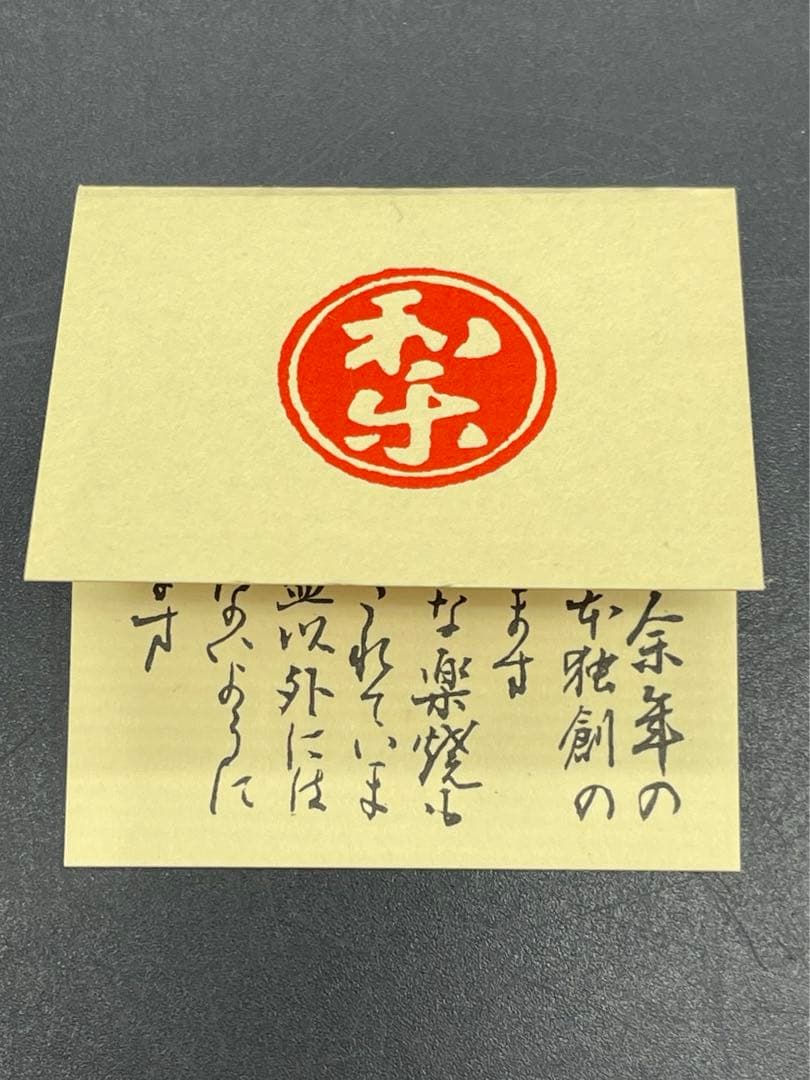 和楽
余年の
本独創の
ます
な楽焼も
れていま
皿以外には
ないように
ます